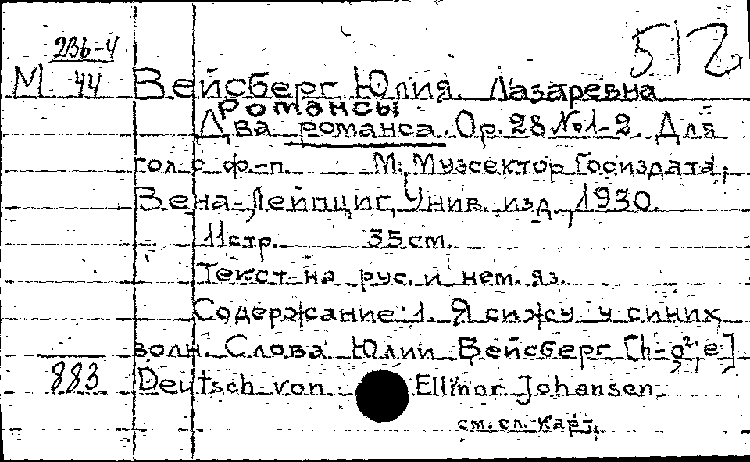 512
2Вб-4
М 44 Вейсберг Юлия Лазаревна
Романсы
Два романса. Op. 28 №1-2. Для
гол с ф.-п. М. Музсектор Госиздата,
Вена-Лейпциг, Унив. изд., 1930.
11стр. 35см.
Текст на рус. и нем. яз.
Содержание: 1. Я сижу у синих
волн. Слова Юлии Вейсберг [h-g²; e]
883 Deutsch von Ellinor Johansen
см. сл. карт.